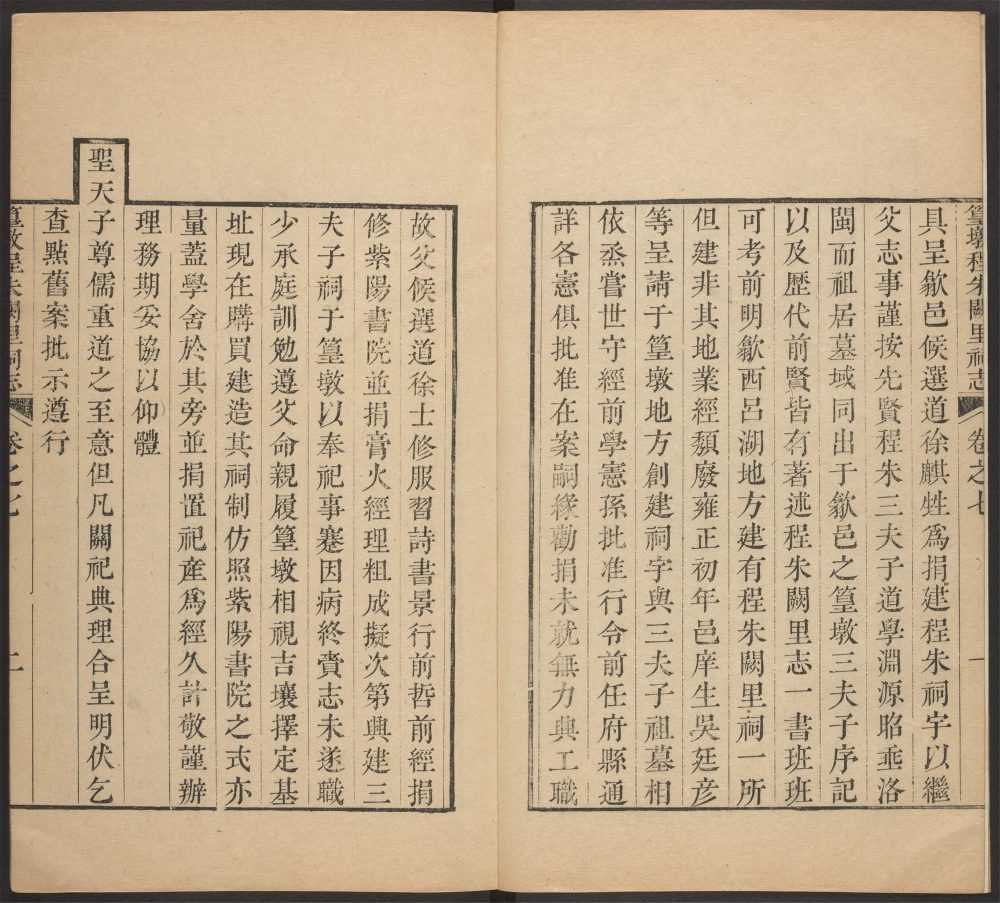 篁墩程朱闕里祠志 卷之七 一
具呈歙邑候選道徐麒甡爲捐建程朱祠宇以繼
父志事謹按先賢程朱三夫子道學淵源昭垂洛
閩而祖居墓域同出于歙邑之篁墩三夫子序記
以及歷代前賢皆有著述程朱闕里志一書班班
可考前明歙西呂湖地方建有程朱闕里祠一所
但建非其地業經頹廢雍正初年邑庠生吳廷彥
等呈請于篁墩地方創建祠宇與三夫子祖墓相
依烝嘗世守經前學憲孫批准行令前任府縣通
詳各憲俱批准在案嗣緣勸捐未就無力興工職
故父候選道徐士修服習詩書景行前哲前經捐
修紫陽書院並捐膏火經理粗成擬次第興建三
夫子祠于篁墩以奉祀事蹇因病終賫志未遂職
少承庭訓勉遵父命親履篁墩相視吉壤擇定基
址現在購買建造其祠制仿照紫陽書院之式亦
量蓋學舍於其旁並捐置祀產爲經久計敬謹辦
理務期妥協以仰體
聖天子尊儒重道之至意但凡關祀典理合呈明伏乞
查點舊案批示遵行
篁墩程朱闕里祠志 卷之七 二